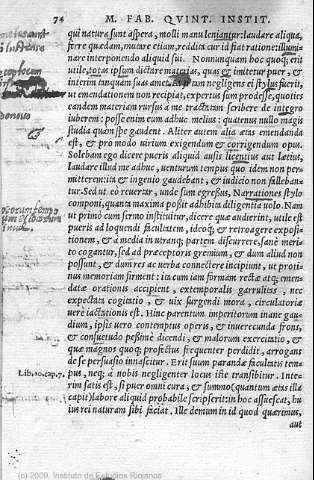 74 M. FAB. QVINT. INSTIT.
qui natura sunt aspera, molli manu leniantur: laudare aliqua,
ferre quædam, mutare etiam, reddita cur id fiat ratione: illumi
nare interponendo aliquid sui. Nonnunquam hoc quoq; erit
utile, totas ipsum dictare materias, quas & imitetur puer, &
interim tanquam suas amet. At si tam negligens ei stylus fuerit,
ut emendationem non recipiat, expertus sum prodesse, quoties
eandem materiam rursus à me tractatam scribere de integro
iuberem: posse enim eum adhuc melius: quatenus nullo magis
studia quàm spe gaudent. Aliter autem alia ætas emendanda
est, & pro modo uirium exigendum & corrigendum opus.
Solebam ego dicere pueris aliquid ausis licentius aut lætius,
laudare illud me adhuc, uenturum tempus quo idem non per
mitterem: ita & ingenio gaudebant, & iudicio non falleban-
tur. Sed ut eò reuertar, unde sum egressus, Narrationes stylo
componi, quanta maxima possit adhibita diligentia uolo. Nam
ut primò cum sermo instituitur, dicere quæ audierint, utile est
pueris ad loquendi facultatem, ideoq; & retroagere expositio
nem, & à media in utranq; partem discurrere, sanè meritò
cogantur, sed ad præceptoris gremium, & dum aliud non
possunt, & dum res ac uerba connectere incipiunt, ut proti-
nus memoriam firment: ita cum iam formam rectæ atq; emen-
datæ orationis accipient, extemporalis garrulitas, nec
expectata cogitatio, & uix surgendi mora, circulatoriæ
uerè iactationis est. Hinc parentum imperitorum inane gau-
dium, ipsis uerò contemptus operis, & inuerecunda frons,
& consuetudo pessimè dicendi, & malorum exercitatio, &
quæ magnos quoq; profectus frequenter perdidit, arrogans
de se persuasio innascitur. Erit suum parandæ facultatis tem-
Lib. 10. cap. 7. pus, neq; à nobis negligenter locus iste transibitur. Inte-
rim satis est, si puer omni cura, & summo (quantum ætas illa
capit) labore aliquid probabile scripserit: in hoc assuescat, hu
ius rei naturam sibi faciat. Ille demum in id quod quærimus,
aut
(c) 2009, Instituto de Estudios Riojanos